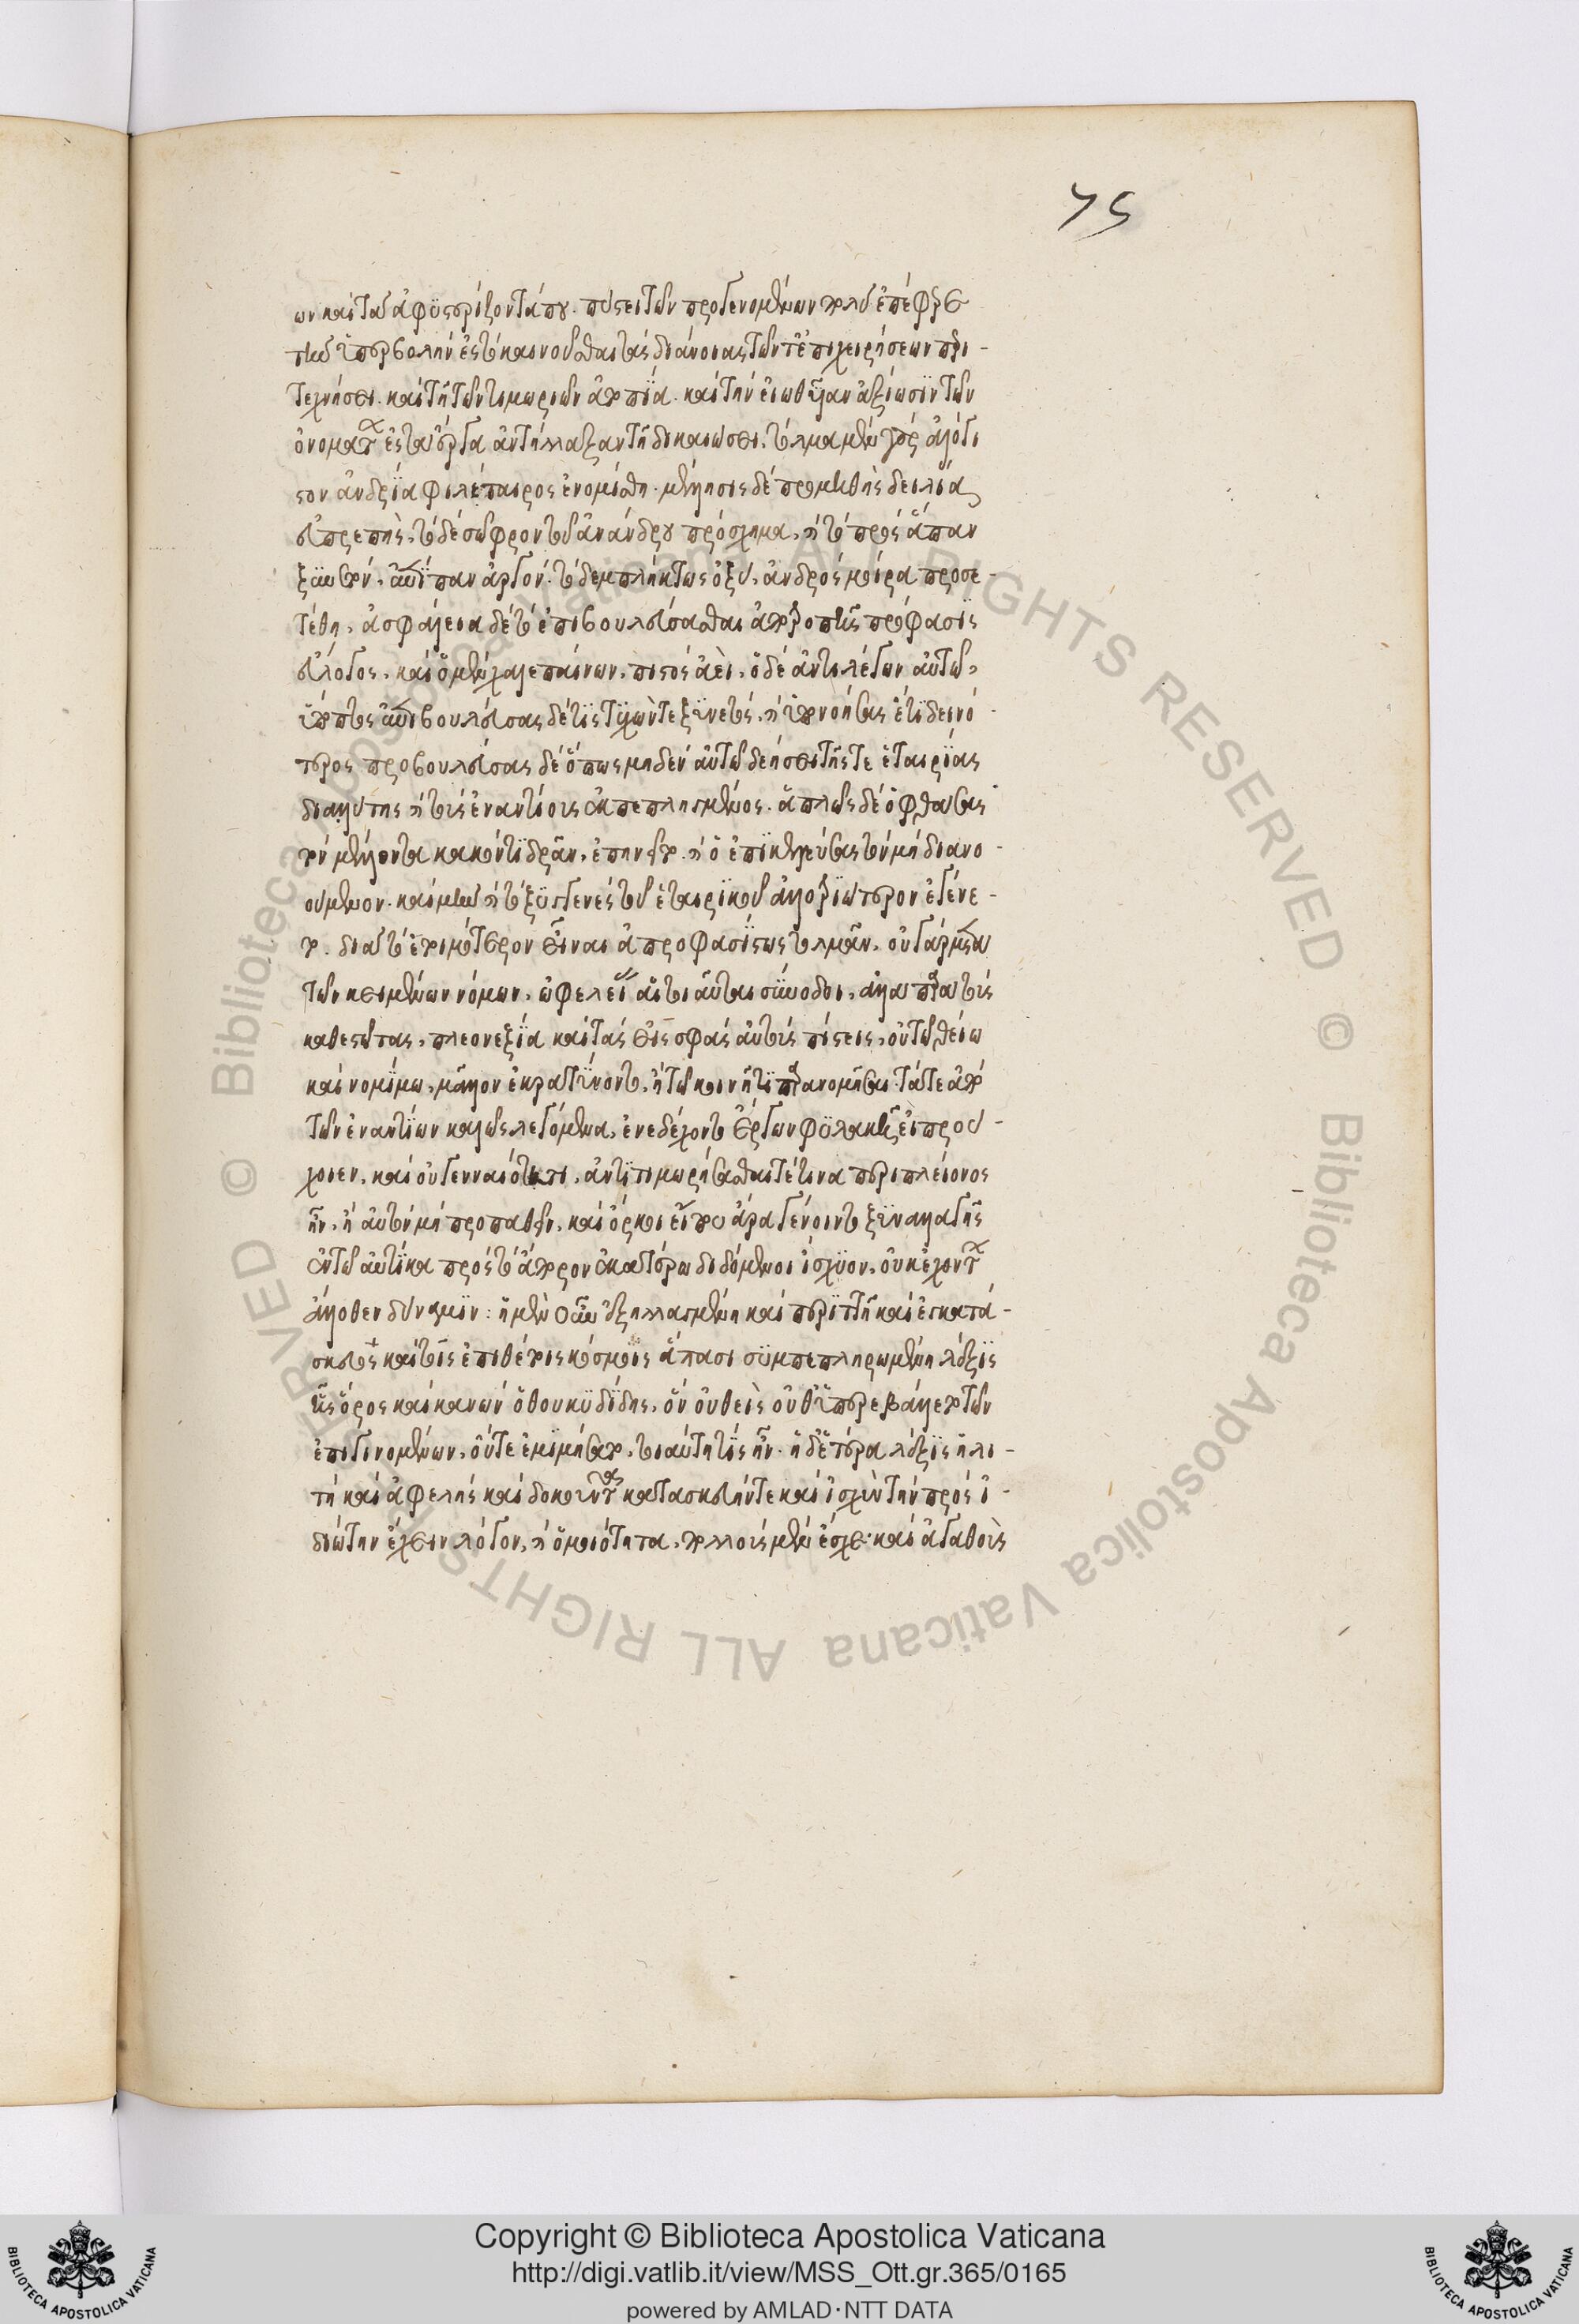 75
ων καὶ τὰ ἀφϋστρίζοντά που πύστει τῶν προγενομένων πολὺ ἐπέφερε
τὴν ὑπερβολὴν ἐς τὸ καινοῦσθαι τὰς διάνοιας τῶν τ' ἐπιχειρήσεων περι-
τεχνήσει. καὶ τῆ τῶν τιμωριῶν ἀτοπία. καὶ τὴν εἰωθυῖαν ἀξίωσϊν τῶν
ὀνομάτων ἐς τὰ ἔργα ἀντήλλαξαν τῆ δικαιώσει. τόλμα μὲν γὰρ ἀλόγι
στον ἀνδρία φιλέταιρος ἐνομίσθη. μέλλησις δὲ προμηθὴς δειλία
εὐπρεπὴς. τὸ δὲ σῶφρον τοῦ ἀνάνδρου πρόσχημα. καὶ τὸ πρὸς ἅπαν
ξϋνετὸν. ἐπὶ πᾶν ἀργὸν. τὸ δ' ἐμπλήκτως ὀξὺ, ἀνδρὸς μοίρα προσε-
τέθη. ἀσφάλεια δὲ τὸ ἐπιβουλεύσασθαι ἀποτροπῆς πρόφασις
εὔλογος. καὶ ὁ μὲν χαλεπαίνων, πιστὸς ἀεὶ. ὁ δὲ ἀντιλέγων αὐτῶ,
ὕποπτος. ἐπιβουλεύσας δέ τις τυχών τε ξϋνετός. καὶ ὑπονοήσας ἔτι δεινό-
τερος. προβουλεύσας δὲ ὅπως μηδὲν αὐτῶ δεήσει τῆς τε ἑταιρίας
διαλυτὴς καὶ τοὺς ἐναντίους ἐκπεπληγμένος. ἁπλῶς δὲ ὁ φθάσας
τὸν μέλλοντα κακόν τι δρᾶν, ἐπηνεῖτο. καὶ ὁ ἐπικελεύσας τὸν μὴ διανο-
ούμενον. καὶ μὴν καὶ τὸ ξϋγγενὲς τοῦ ἑταιρϊκοῦ ἀλλοτριώτερον ἐγένε-
το. διὰ τὸ ἑτοιμότερον εἶναι ἀπροφασίστως τολμᾶν. οὐ γὰρ μετὰ
τῶν κειμένων νόμων, ὠφελείας αἱ τοιαῦται σύνοδοι, ἀλλὰ παρὰ τοὺς
καθεστῶτας, πλεονεξία καὶ τὰς εἰς σφᾶς αὐτοὺς πίστεις, οὐ τῶ θείω
καὶ νομίμω, μᾶλλον ἐκρατύνοντο, ἢ τῶ κοινῆ τι παρανομῆσαι. τά τε ἀπὸ
τῶν ἐναντίων καλῶς λεγόμενα, ἐνεδέχοντο ἔργων φυλακῆ εἰ πρού-
χοιεν, καὶ οὐ γενναιότητι. ἀντϊτιμωρήσασθαι τέ τινα περὶ πλείονος
ἦν. ἢ αὐτὸν μὴ προπαθεῖν. καὶ ὅρκοι εἴ που ἄρα γένοιντο ξυναλλαγῆς
ἐν τῶ αὐτίκα πρὸς τὸ ἄπορον ἑκατέρω διδόμενοι ἴσχϋον. οὐκ ἐχόντων
ἄλλοθεν δύναμϊν: ἡ μὲν οὖν ἐξηλλαγμένη καὶ περιττὴ καὶ ἐγκατά-
σκευος καὶ τοῖς ἐπιθέτοις κόσμοις ἅπασι συμπεπληρωμένη λέξις
ἧς ὅρος καὶ κανὼν ὁ θουκϋδίδης. ὃν οὐθεὶς οὔθ' ὑπερεβάλετο τῶν
ἐπιγινομένων. οὔτε ἐμιμήσατο. τοιαύτη τὶς ἦν. ἡ δ' ἑτέρα λέξις ἡ λι-
τὴ καὶ ἀφελὴς καὶ δοκοῦσα κατασκευήν τε καὶ ἰσχὺν τὴν πρὸς ἰ-
διώτην ἔχειν λόγον. καὶ ὁμοιότητα. πολλοὺς μὲν ἔσχε καὶ ἀγαθοὺς
© Biblioteca Apostolica Vaticana ALL RIGHTS RESERVED © Biblioteca Apostolica Vaticana ALL RIGHTS RESERVED
BIBLIOTECA APOSTOLICA VATICANA
Copyright © Biblioteca Apostolica Vaticana
http://digi.vatlib.it/view/MSS_Ott.gr.365/0165
powered by AMLAD·NTT DATA
BIBLIOTECA APOSTOLICA VATICANA